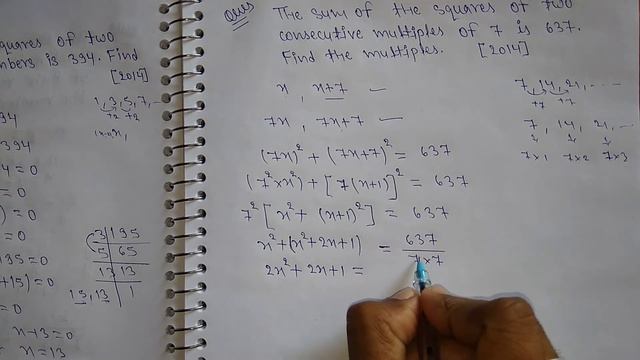 quares of two
mbers is 394. Find
[2019]
1, 3, 5, 7, ..
+2 +2
94
394
4 = 0
= 0
) = 0
= 0
135 = 0
+15) = 0
3 | 195
5 | 65
13 | 13
1
15, 13
x-13 = 0
x = 13
Ques The sum of the squares of two
consecutive multiples of 7 is 637.
Find the multiples. [2014]
x, x+7 —
7x, 7x+7 —
(7x)² + (7x+7)² = 637
(7²×x²) + [7(x+1)]² = 637
7² [x² + (x+1)²] = 637
x² + (x²+2x+1) = 637
7×7
2x² + 2x + 1 =
7, 14, 21, ....
+7 +7
7, 14, 21, ...
7×1 7×2 7×3